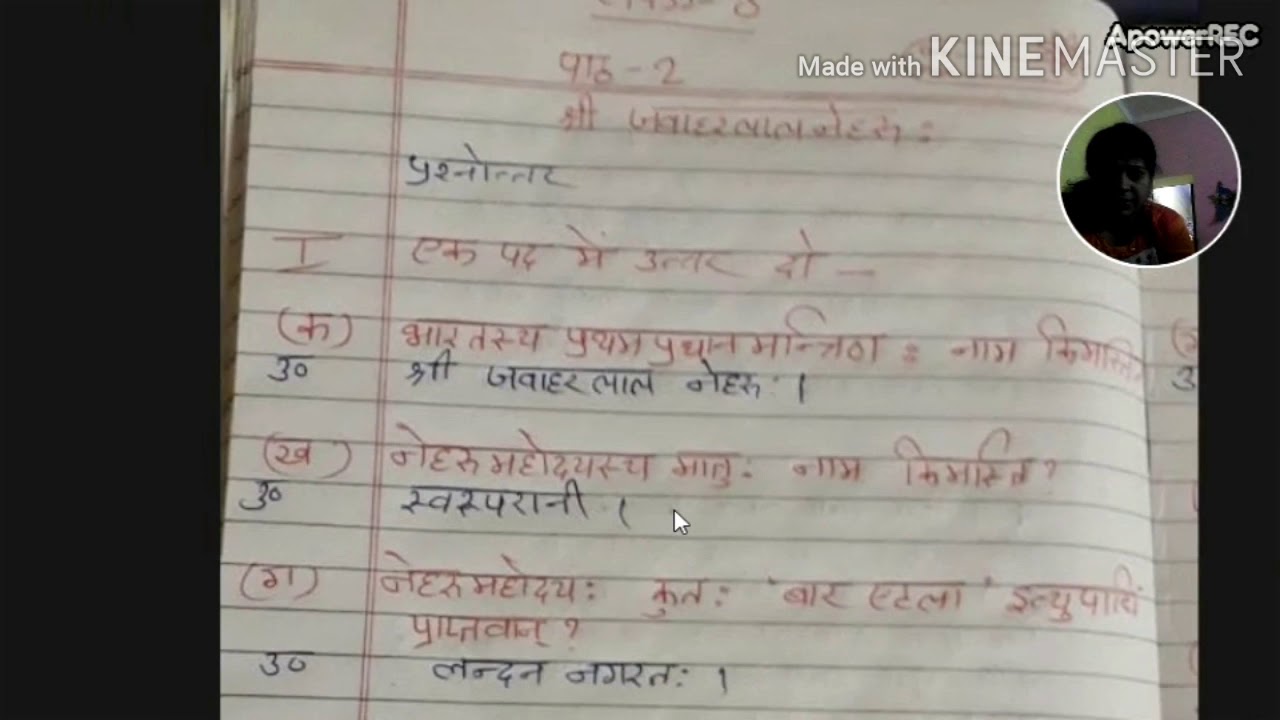 ApowerREC
Made with KINEMASTER
पाठ - 2
श्री जवाहरलाल नेहरू :
प्रश्नोत्तर
I एक पद में उत्तर दो —
(क) भारतस्य प्रथम प्रधान मन्त्रिण : नाम किमस्ति
उ० श्री जवाहरलाल नेहरू : ।
(ख) नेहरू महोदयस्य मातु : नाम किमस्ति ?
उ० स्वरूपरानी ।
(ग) नेहरू महोदय : कुत : 'बार एटला' इत्युपाधिं
प्राप्तवान् ?
उ० लन्दन नगरत : ।